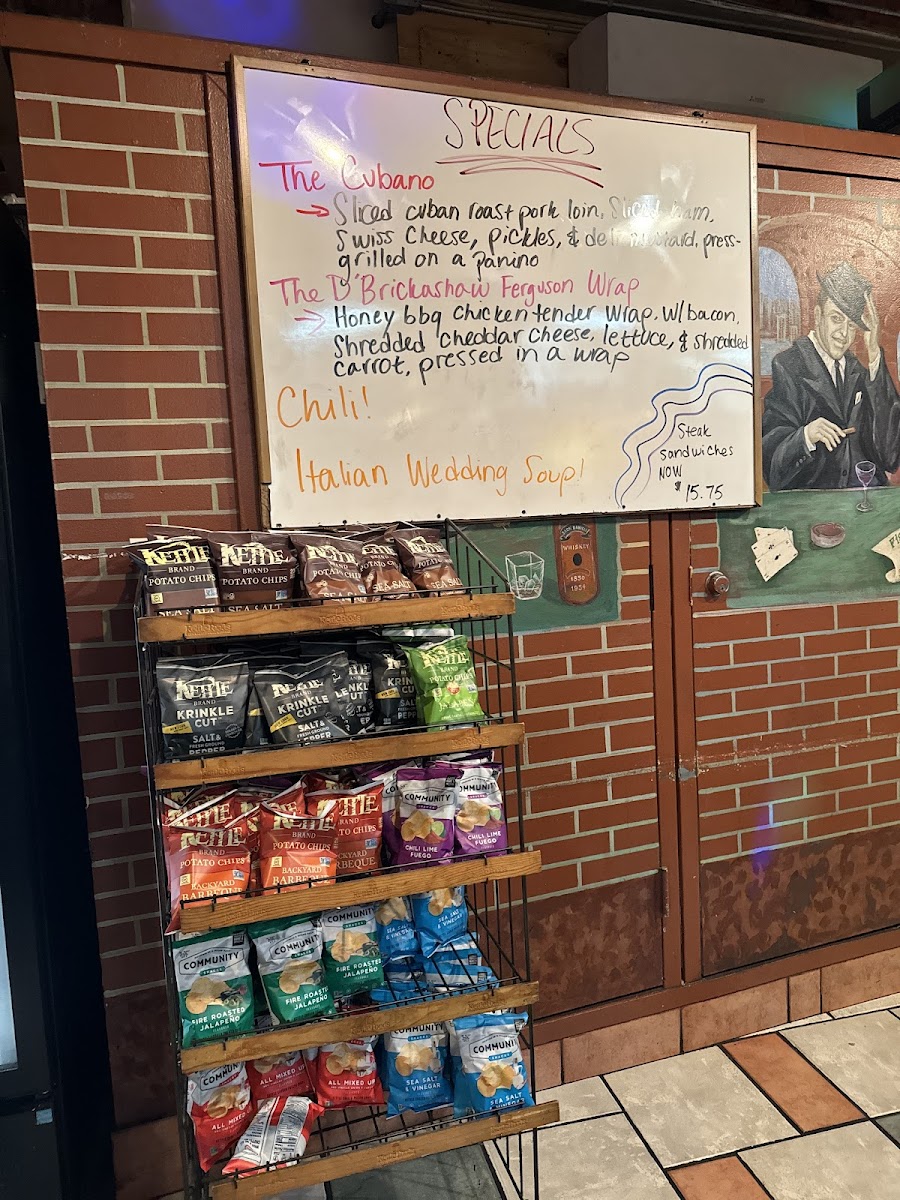 SPECIALS
The Cubano
→ Sliced cuban roast pork loin, Sliced ham,
Swiss Cheese, pickles, & deli mustard, press-
grilled on a panino
The D'Brickashaw Ferguson Wrap
→ Honey bbq chicken tender wrap. w/ bacon,
Shredded cheddar cheese, lettuce, & shredded
carrot, pressed in a wrap
Chili!
Italian Wedding Soup!
Steak
sandwiches
NOW
$15.75
WHISKEY
KETTLE
BRAND
POTATO CHIPS
SEA SALT
KETTLE
BRAND
POTATO CHIPS
SEA SALT
KETTLE
BRAND
POTATO CHIPS
SEA SALT
KETTLE
BRAND
POTATO CHIPS
SEA SALT
KETTLE
BRAND
POTATO CHIPS
SEA SALT
KETTLE
BRAND
KRINKLE
CUT
SALT &
FRESH GROUND
PEPPER
KETTLE
BRAND
KRINKLE
CUT
SALT &
FRESH GROUND
PEPPER
KETTLE
BRAND
POTATO CHIPS
KETTLE
KETTLE
BRAND
POTATO CHIPS
BACKYARD
BARBEQUE
KETTLE
BRAND
POTATO CHIPS
BACKYARD
BARBEQUE
COMMUNITY
SNACKS
CHILI LIME
FUEGO
COMMUNITY
CHILI LIME
FUEGO
COMMUNITY
SNACKS
FIRE ROASTED
JALAPEÑO
COMMUNITY
SNACKS
FIRE ROASTED
JALAPEÑO
COMMUNITY
SNACKS
FIRE ROASTED
JALAPEÑO
SEA SALT
& VINEGAR
SEA SALT
& VINEGAR
COMMUNITY
ALL MIXED UP
ALL MIXED UP
ALL MIXED UP
COMMUNITY
SNACKS
SEA SALT
& VINEGAR
COMMUNITY
SNACKS
SEA SALT
& VINEGAR